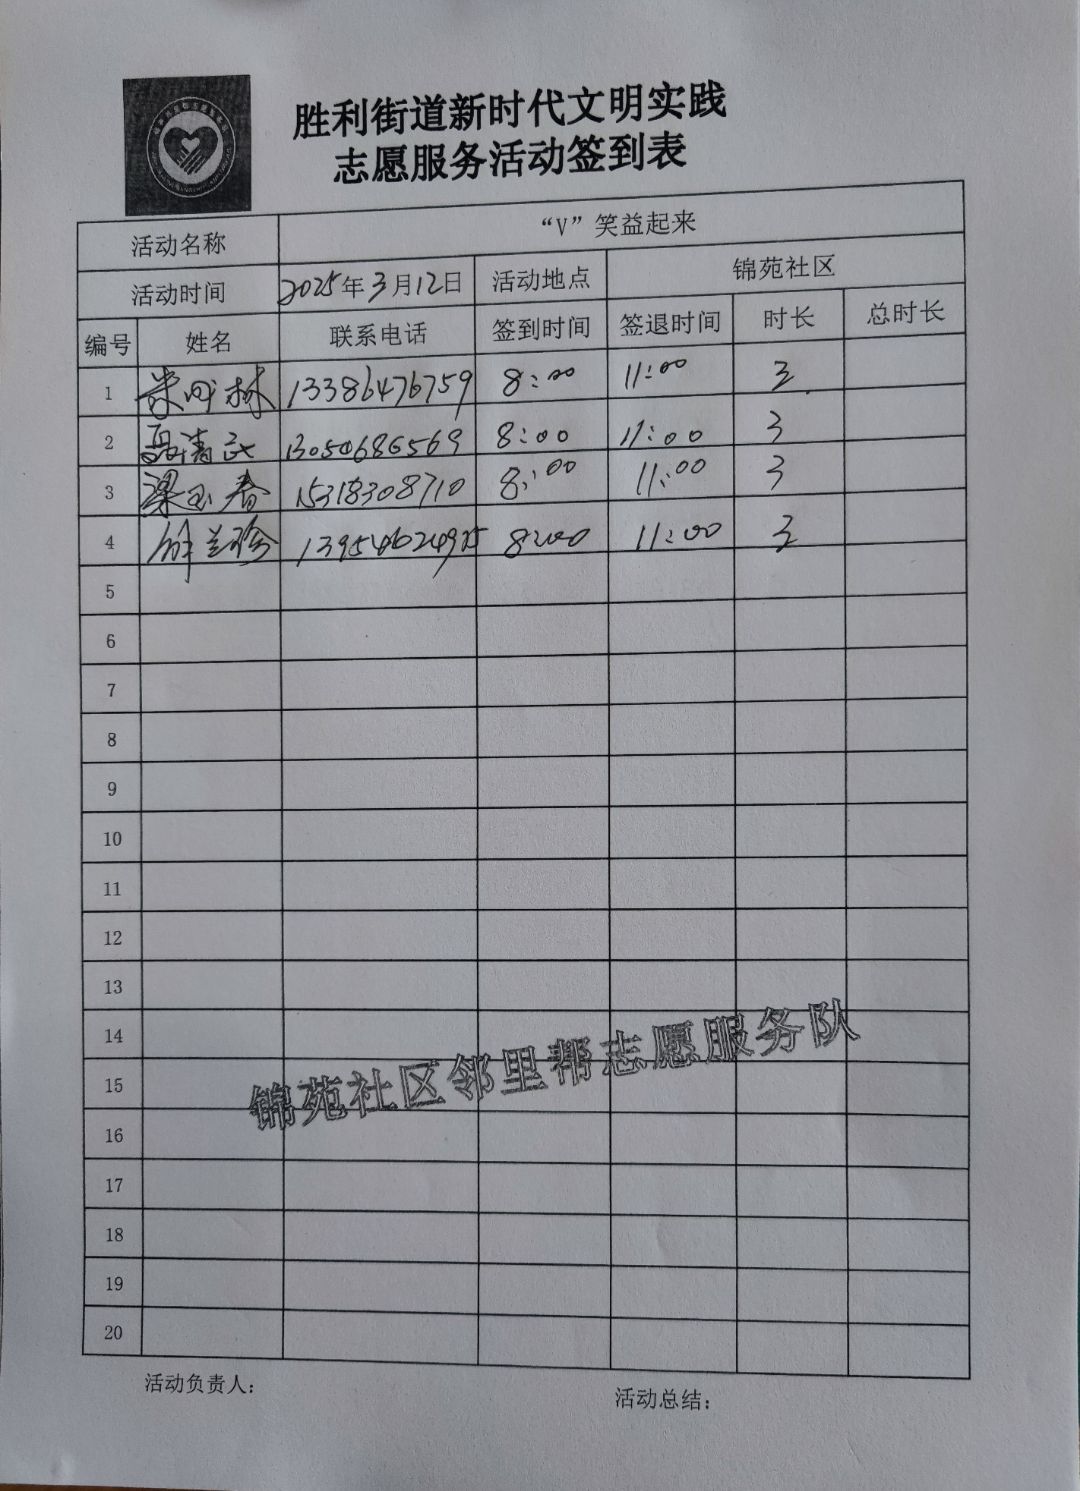 胜利街道新时代文明实践
志愿服务活动签到表
活动名称 “V”笑益起来
活动时间 2025年3月12日 活动地点 锦苑社区
编号 姓名 联系电话 签到时间 签退时间 时长 总时长
1 林 13386476759 8:00 11:00 3
2 清 13050686569 8:00 11:00 3
3 梁玉春 15318308710 8:00 11:00 3
4 兰珍 8:00 11:00 3
5
6
7
8
9
10
11
12
13
14
15
16
17
18
19
20
锦苑社区邻里帮志愿服务队
活动负责人：
活动总结：